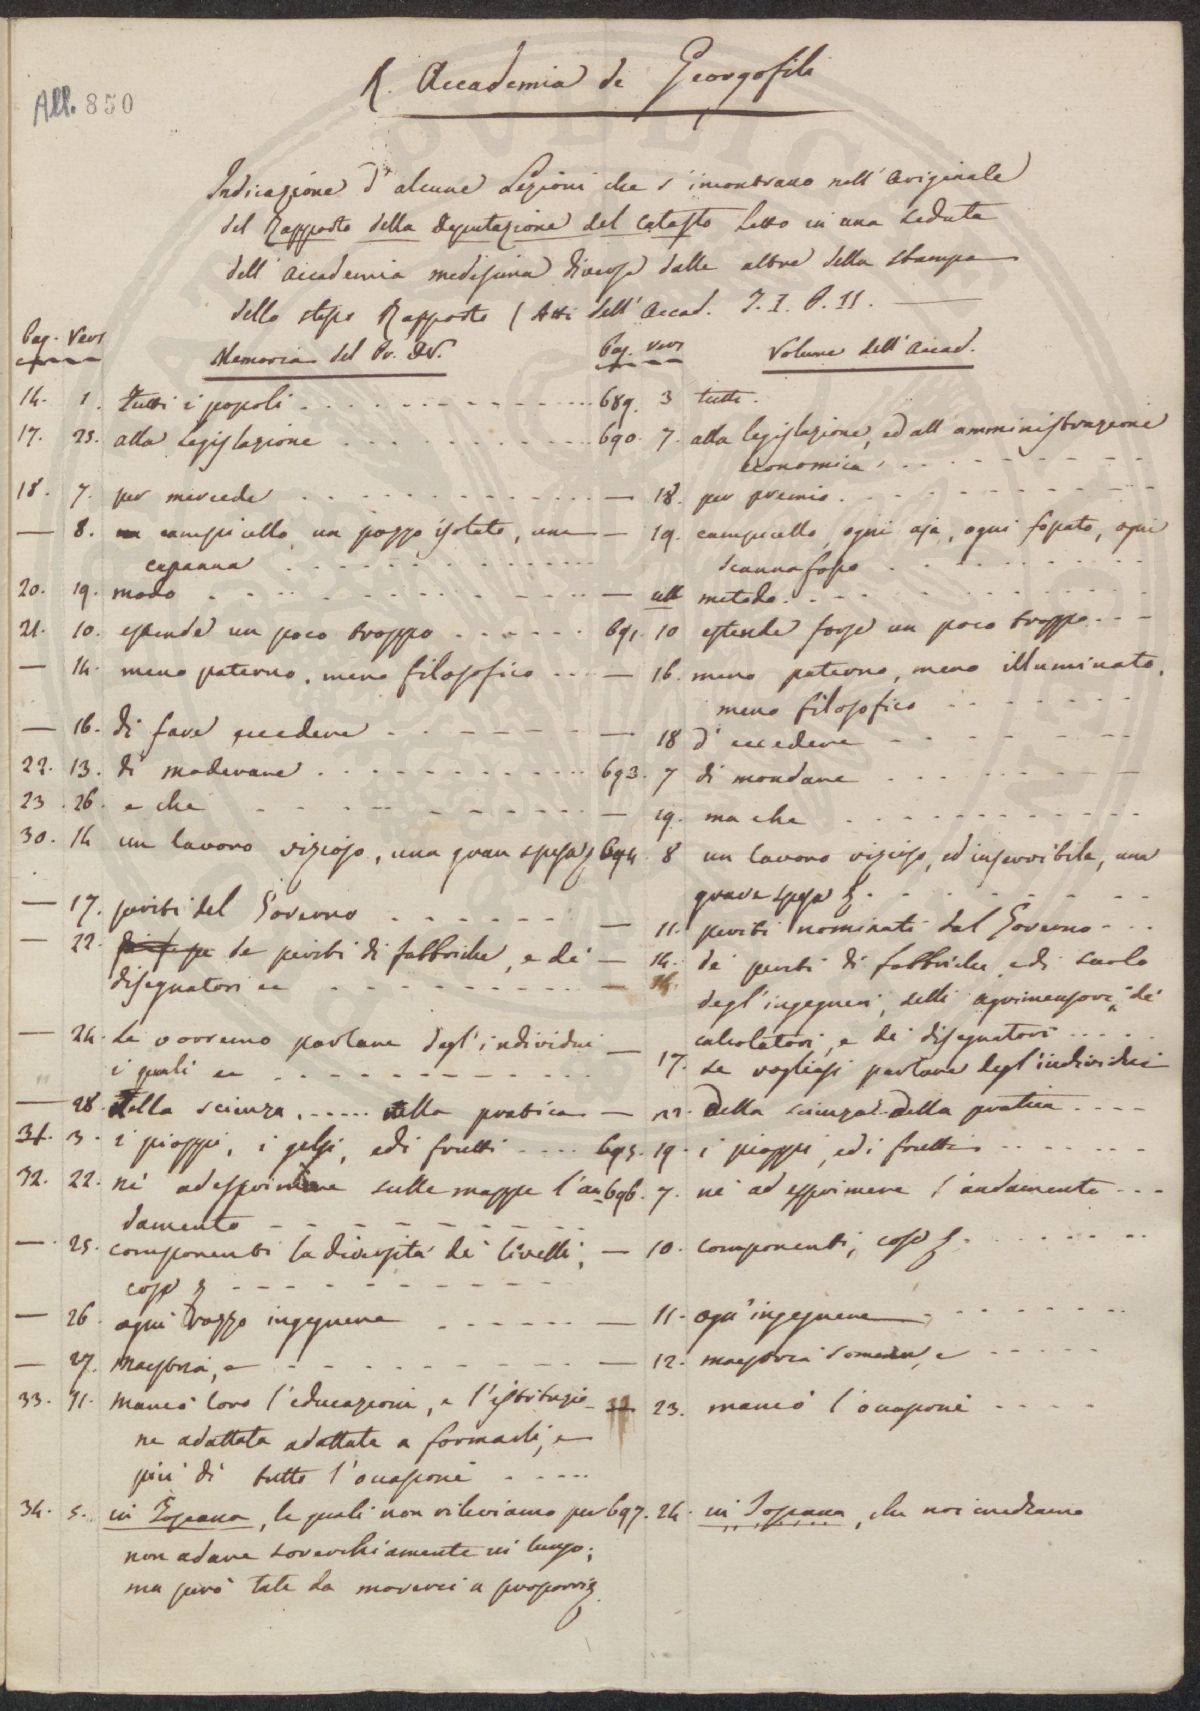 R. Accademia de Georgofili
All. 850
Indicazione d' alcune Lezioni che s' incontrano nell' Originale
del Rapporto della Deputazione del Catasto Letto in una Seduta
dell' Accademia medesima diverse dalle altre della stampa
dello stesso Rapporto (Atti dell' Accad. T. I. P. II.
Pag. Vers Memoria del Pag. Vers Volume dell' Accad.
14. 1. Tutti i popoli 689. 3 tutti.
17. 25. alla Legislazione 690. 7. alla legislazione, ed all' amministrazione
economica
18. 7. per mercede — 18. per premio.
— 8. campicello, un pozzo isolato, una — 19. campicello, ogni aja, ogni fossato, ogni
capanna scannafosso
20. 19. modo — ult metodo.
21. 10. estende un poco troppo 691. 10 estende forse un poco troppo
— 14. meno paterno, meno filosofico — 16. meno paterno, meno illuminato,
meno filosofico
— 16. di fare eccedere — 18 d' eccedere
22. 13. di moderare 693. 7 di mondare
23. 26. e che — 19. ma che
30. 14 un lavoro vizioso, una gran spesa 694. 8 un lavoro vizioso, ed inservibile, una
grave spesa
— 17. periti del Governo — 11. periti nominati dal Governo
— 22. de periti di fabbriche, e de' — 14. de' periti di fabbriche, e di scuole
disegnatori ec
degl' ingegneri, delli agrimensori, de'
calcolatori, e de' disegnatori
— 24. Se vorremo parlare degl' individui — 17. se vogliasi parlare degl' individui
i quali ec
— 28. della scienza, ..... della pratica — 22. della scienza della pratica
31. 3. i pioppi, i gelsi, ed i frutti 695. 19. i pioppi, ed i frutti
32. 22. nè ad esprimere sulle mappe l'an 696. 7. nè ad esprimere l' andamento
damento
— 25. componenti la diversità de' livelli, — 10. componenti, cose
cose
— 26. ogni rozzo ingegnere — 11. ogn' ingegnere
— 27. maestria, e — 12. maestria somma, e
33. 11. mancò loro l' educazione, e l' istituzio — 23. mancò l' occasione
ne adattata adattata a formarli, e
più di tutto l' occasione
34. 5. in Toscana, le quali non rileviamo per 697. 24. in Toscana, che noi crediamo
non andare soverchiamente in lungo;
ma però tale da moverci a proporvi